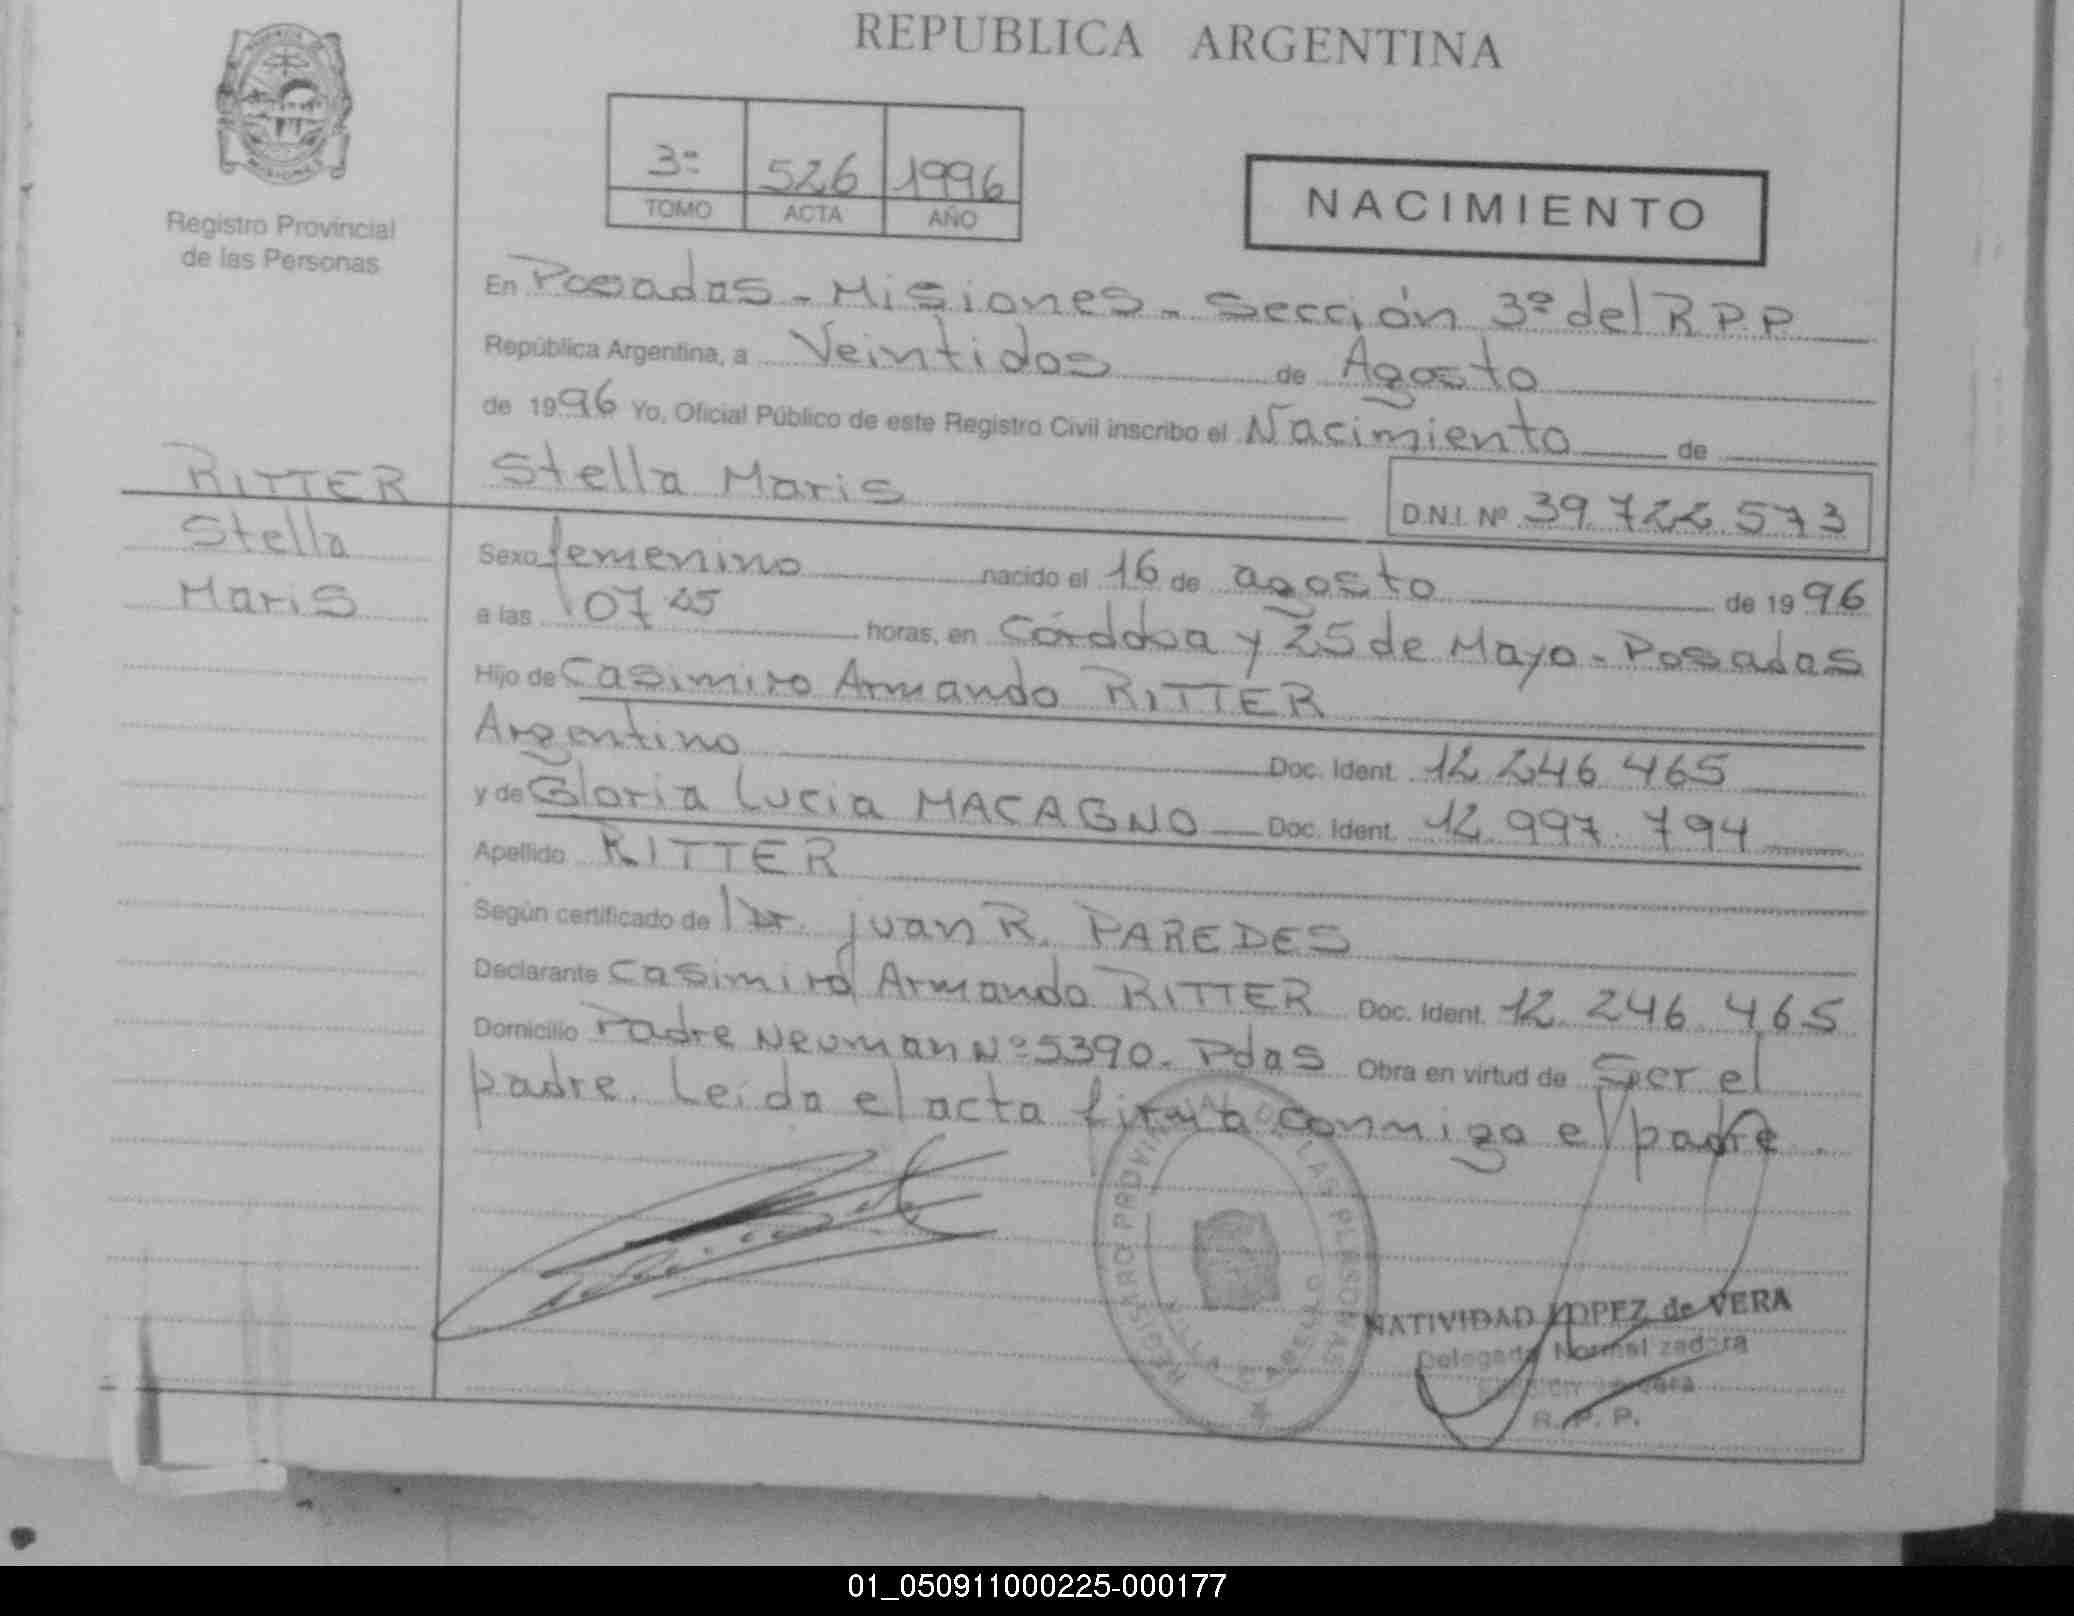 REPUBLICA ARGENTINA
Registro Provincial
de las Personas
3º 526 1996
TOMO ACTA AÑO
NACIMIENTO
En Posadas - Misiones - Sección 3º del R.P.P
República Argentina, a Veintidos de Agosto
de 1996 Yo, Oficial Público de este Registro Civil inscribo el Nacimiento de
RITTER
Stella
Maris
Stella Maris
D.N.I. Nº 39.722.573
Sexo femenino nacido el 16 de agosto de 1996
a las 07 horas, en Córdoba y 25 de Mayo - Posadas
Hijo de Casimiro Armando RITTER
Argentino Doc. Ident. 12 246 465
y de Gloria Lucia MACAGNO Doc. Ident. 12 997. 794
Apellido RITTER
Según certificado de Dr. juan R. PAREDES
Declarante Casimiro Armando RITTER Doc. Ident. 12. 246 465
Domicilio Padre Neuman Nº 5390 - Pdas Obra en virtud de Ser el
padre. Leída el acta firma conmigo el padre.
REGISTRO PROVINCIAL DE LAS PERSONAS
NATIVIDAD LOPEZ de VERA
Delegada Normalizadora
R. P. P.
01_050911000225-000177